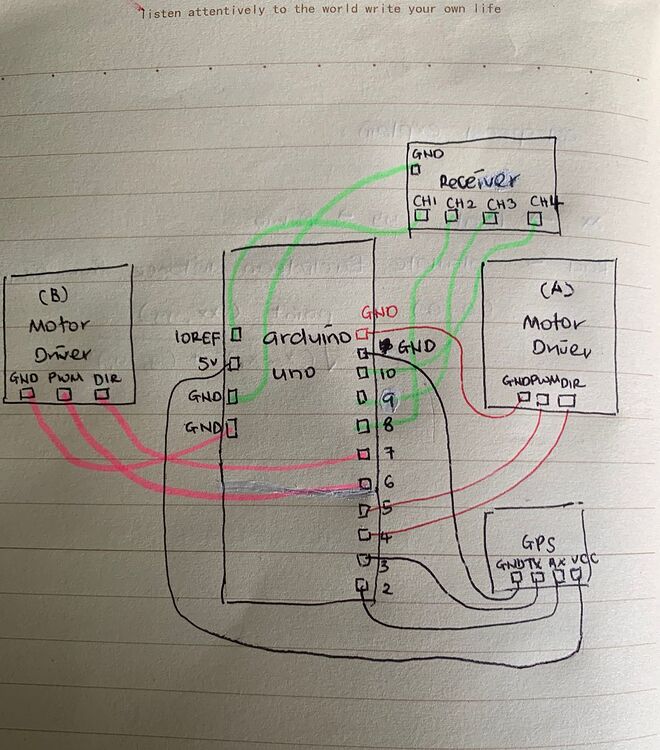 listen attentively to the world write your own life
GND
Receiver
CH1 CH2 CH3 CH4
(B)
Motor
Driver
GND PWM DIR
(A)
Motor
Driver
GND PWM DIR
arduino
uno
IOREF
5v
GND
GND
GND
GND
10
9
8
7
6
5
4
3
2
GPS
GND TX RX VCC